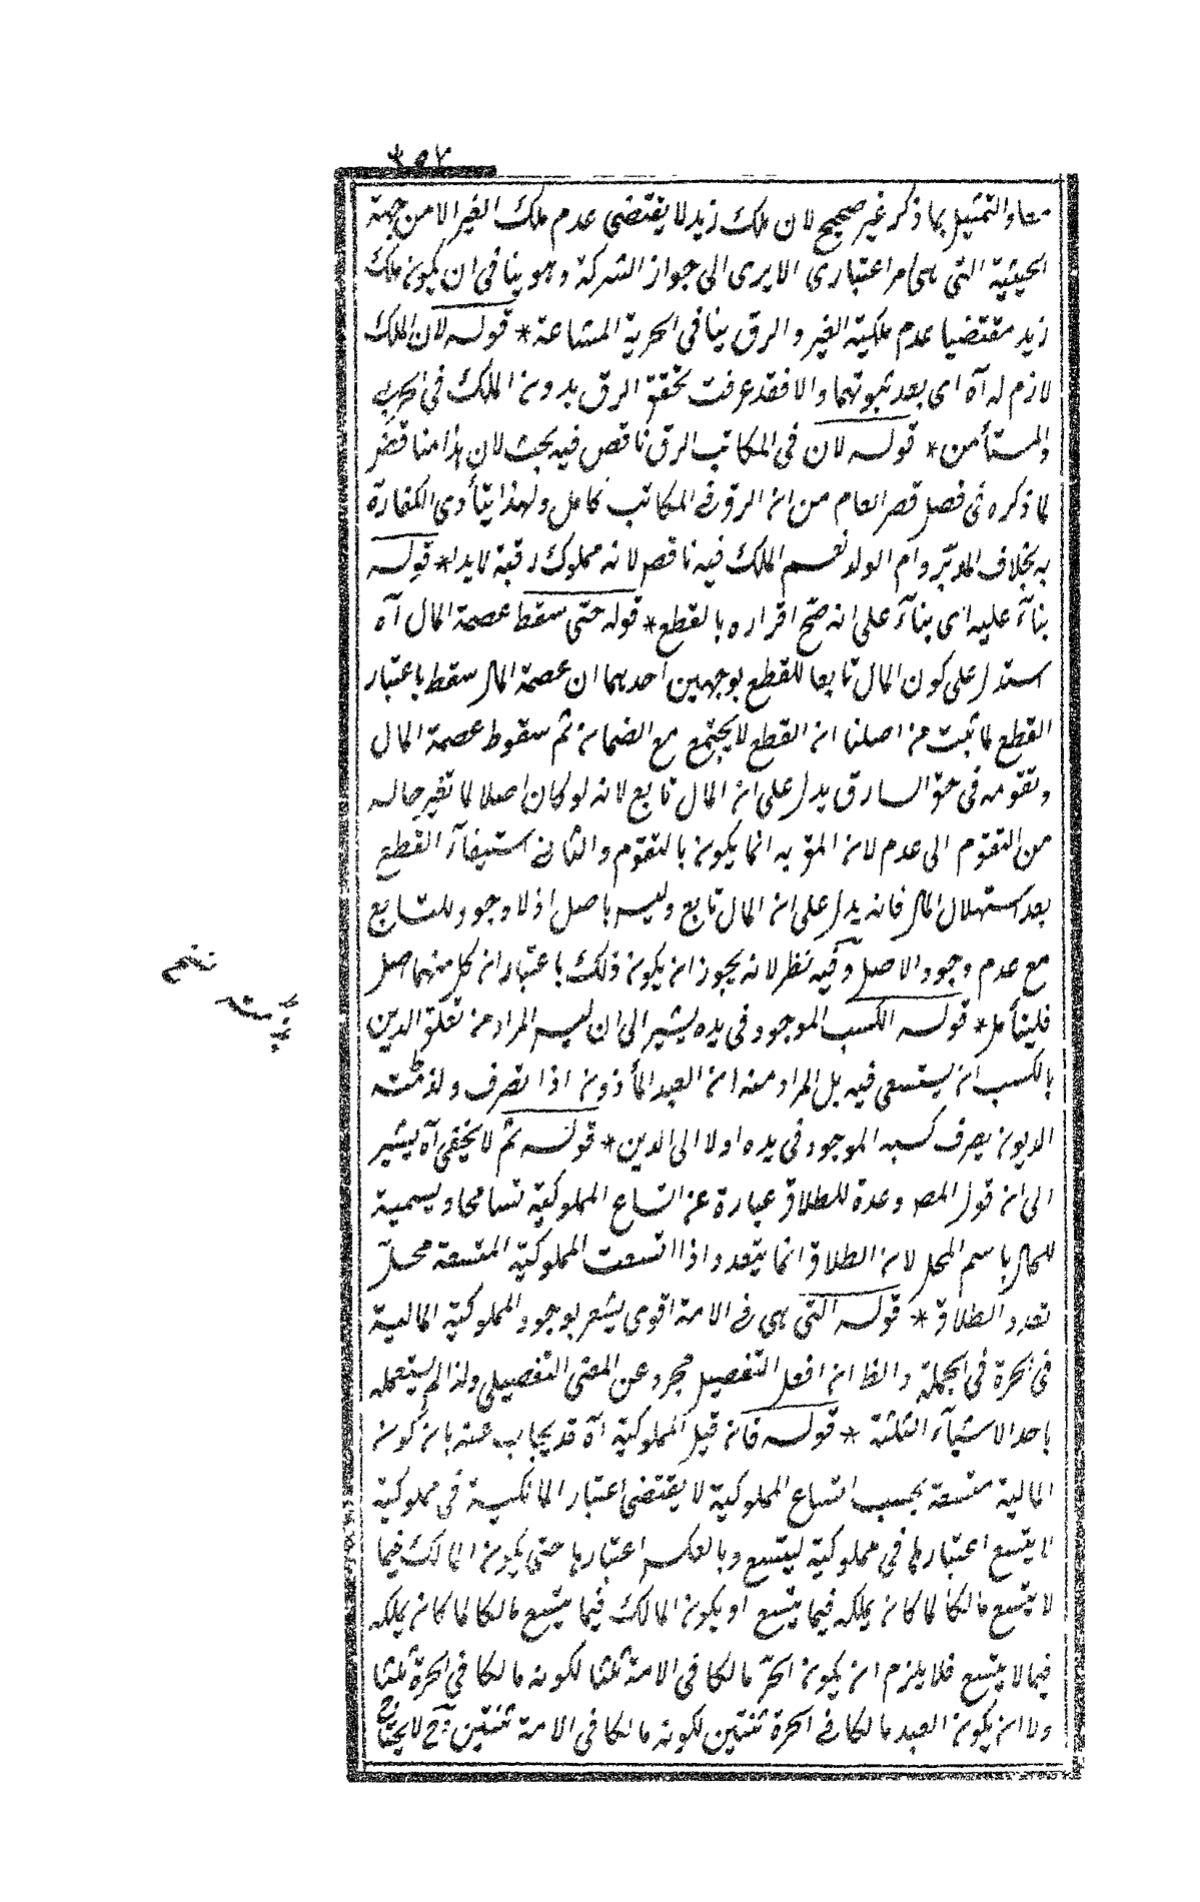 ٣٥٧
معا والتمثيل بما ذكر غير صحيح لان ملك زيد لا يقتضى عدم ملك الغير الا من جهة
الحيثية التى هى امر اعتبارى الا يرى الى جواز الشركة وهو ينافى ان يكون ملك
زيد مقتضيا عدم ملكية الغير والرق ينافى الحرية المشاعة * قوله لان الملك
لازم له آه اى بعد ثبوتهما والا فقد عرفت تحقق الرق بدون الملك فى الحربى
والمستأمن * قوله لان فى المكاتب الرق ناقص فيه بحث لان هذا مناقض
لما ذكره فى فصل قصر العام من ان الرق فى المكاتب كامل ولهذا يتأدى الكفارة
به بخلاف المدبّر وام الولد نعم الملك فيه ناقص لانه مملوك رقبة لا يدا * قوله
بنآء عليه اى بنآء على انه صحّ اقراره بالقطع * قوله حتى سقط عصمة المال آه
استدل على كون المال تابعا للقطع بوجهين احدهما ان عصمة المال سقط باعتبار
القطع لما ثبت من اصلنا ان القطع لا يجتمع مع الضمان ثم سقوط عصمة المال
وتقومه فى حق السارق يدل على ان المال تابع لانه لو كان اصلا لما تغير حاله
من التقوم الى عدم لان المقر به انما يكون بالتقوّم والثانى استيفآء القطع
بعد استهلاك المال فانه يدل على ان المال تابع وليس باصل اذ لا وجود للتابع
مع عدم وجود الاصل وفيه نظر لانه يجوز ان يكون ذلك باعتبار ان كل منهما اصل
فليتأمل * قوله الكسب الموجود فى يده يشير الى ان ليس المراد من تعلق الدين
بالكسب ان يستسعى فيه بل المراد منه ان العبد المأذون اذا تصرف ولذمّته
الديون يصرف كسبه الموجود فى يده اولا الى الدين * قوله ثم لا يخفى آه يشير
الى ان قول المص وعدة للطلاق عبارة عن اتساع المملوكية تسامحا وتسمية
للحال باسم المحل لان الطلاق انما يتعدد اذا اتسعت المملوكية المتسعة محل
تعدد الطلاق * قوله التى هى فى الامة اقوى يشعر بوجود المملوكية المالية
فى الحرة فى الجملة والظ ان افعل التفضيل مجرد عن المعنى التفضيلى ولذا لم يستعمله
باحد الاشيآء الثلثة * قوله فان قيل المملوكية آه قد يجاب عنه بان كون
المالية متسعة بحسب اتساع المملوكية لا يقتضى اعتبار المالكية فى مملوكية
لا يتسع اعتبارها فى مملوكية ليتسع وبالعكس اعتبارها حتى يكون المالك فيما
لا يتسع مالكا لما كان يملكه فيما يتسع او يكون المالك فيما يتسع مالكا لما كان يملكه
فيما لا يتسع فلا يلزم ان يكون الحرّ مالكا فى الامة ثلثا لكونه مالكا فى الحرة ثلثا
ولا ان يكون العبد مالكا فى الحرة ثنتين لكونه مالكا فى الامة ثنتين وح لا يحتاج